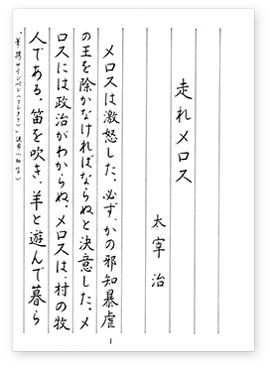 走れメロス
太宰治
メロスは激怒した。必ず、かの邪知暴虐
の王を除かなければならぬと決意した。メ
ロスには政治がわからぬ。メロスは、村の牧
人である。笛を吹き、羊と遊んで暮ら
1